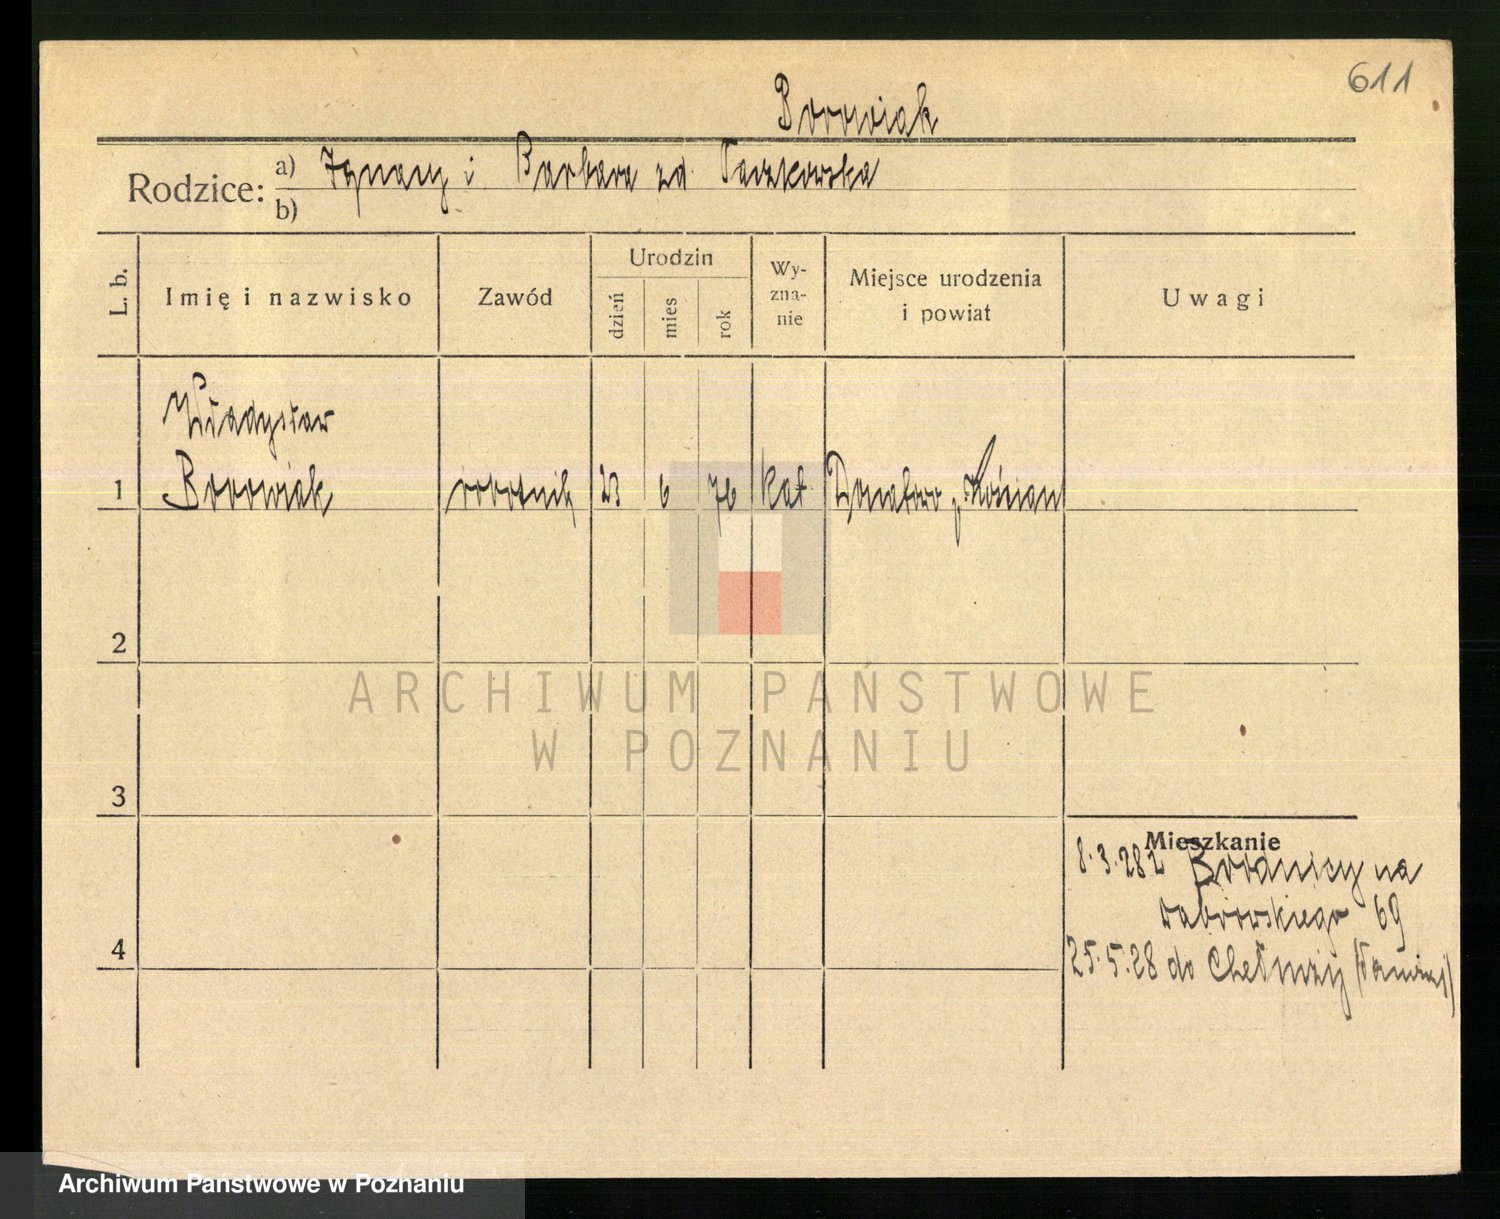 611
Borowiak
Rodzice: a) Ignacy i Barbara zd. Taczkowska
b)
L. b. Imię i nazwisko Zawód Urodzin dzień mies rok Wy-zna-nie Miejsce urodzenia i powiat Uwagi
Władysław
1 Borowiak robotnik 23 6 76 kat Donatowo p. Kościan
2
ARCHIWUM PAŃSTWOWE
W POZNANIU
3
Mieszkanie
8.3.28 z Brodnicy na
69
4
25.5.28 do Chełmży
Archiwum Państwowe w Poznaniu